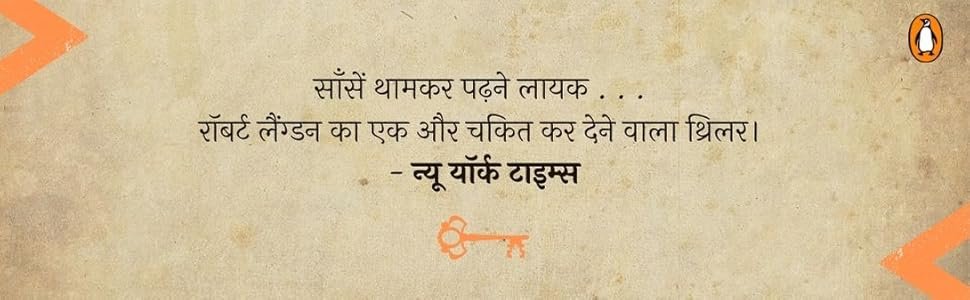 साँसें थामकर पढ़ने लायक . . .
रॉबर्ट लैंग्डन का एक और चकित कर देने वाला थ्रिलर।
– न्यू यॉर्क टाइम्स